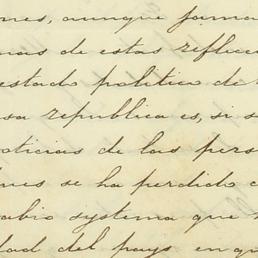 nes, aunque forma
mas de estas reflecc
estado politico de
sa republica es, si s
noticias de las pers
nes se ha perdido
abio systema que
dad del pays en qu